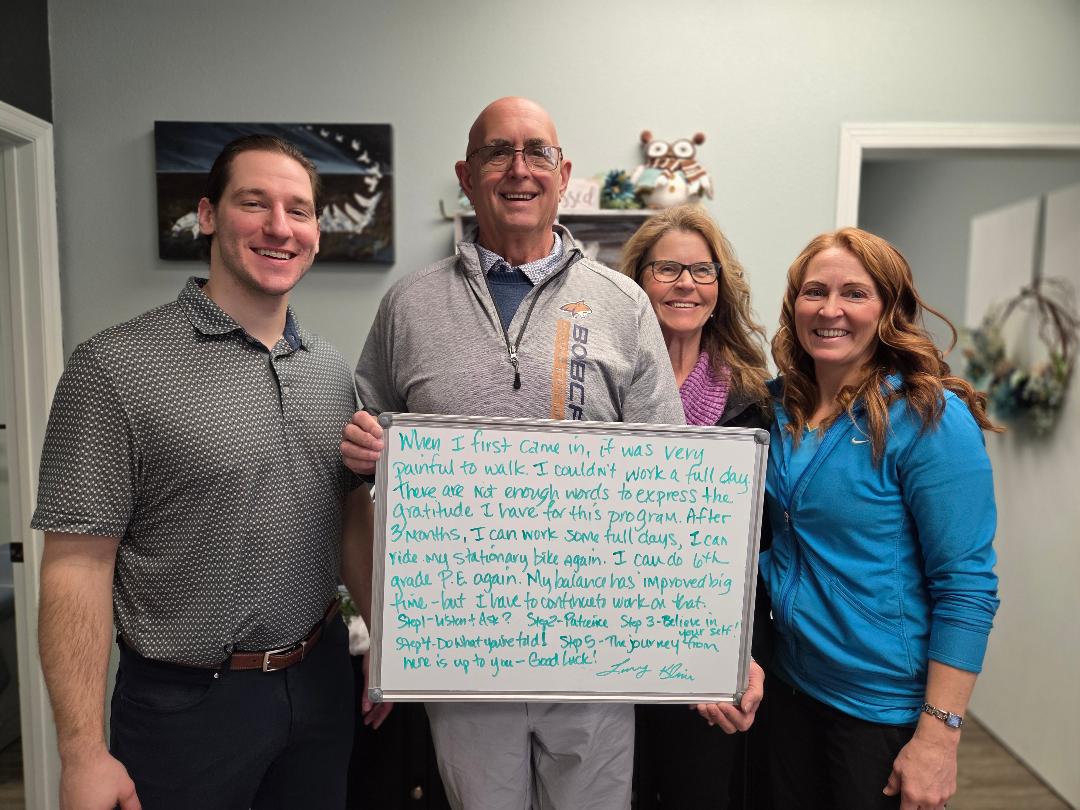 ssed
BOBCA
When I first came in, it was very
painful to walk. I couldn't work a full day.
There are not enough words to express the
gratitude I have for this program. After
3 months, I can work some full days, I can
ride my stationary bike again. I can do 6th
grade P.E. again. My balance has improved big
time - but I have to continue to work on that.
Step 1 - Listen & Ask? Step 2 - Patience Step 3 - Believe in
your self!
Step 4 - Do what you're told! Step 5 - The journey from
here is up to you - Good Luck!